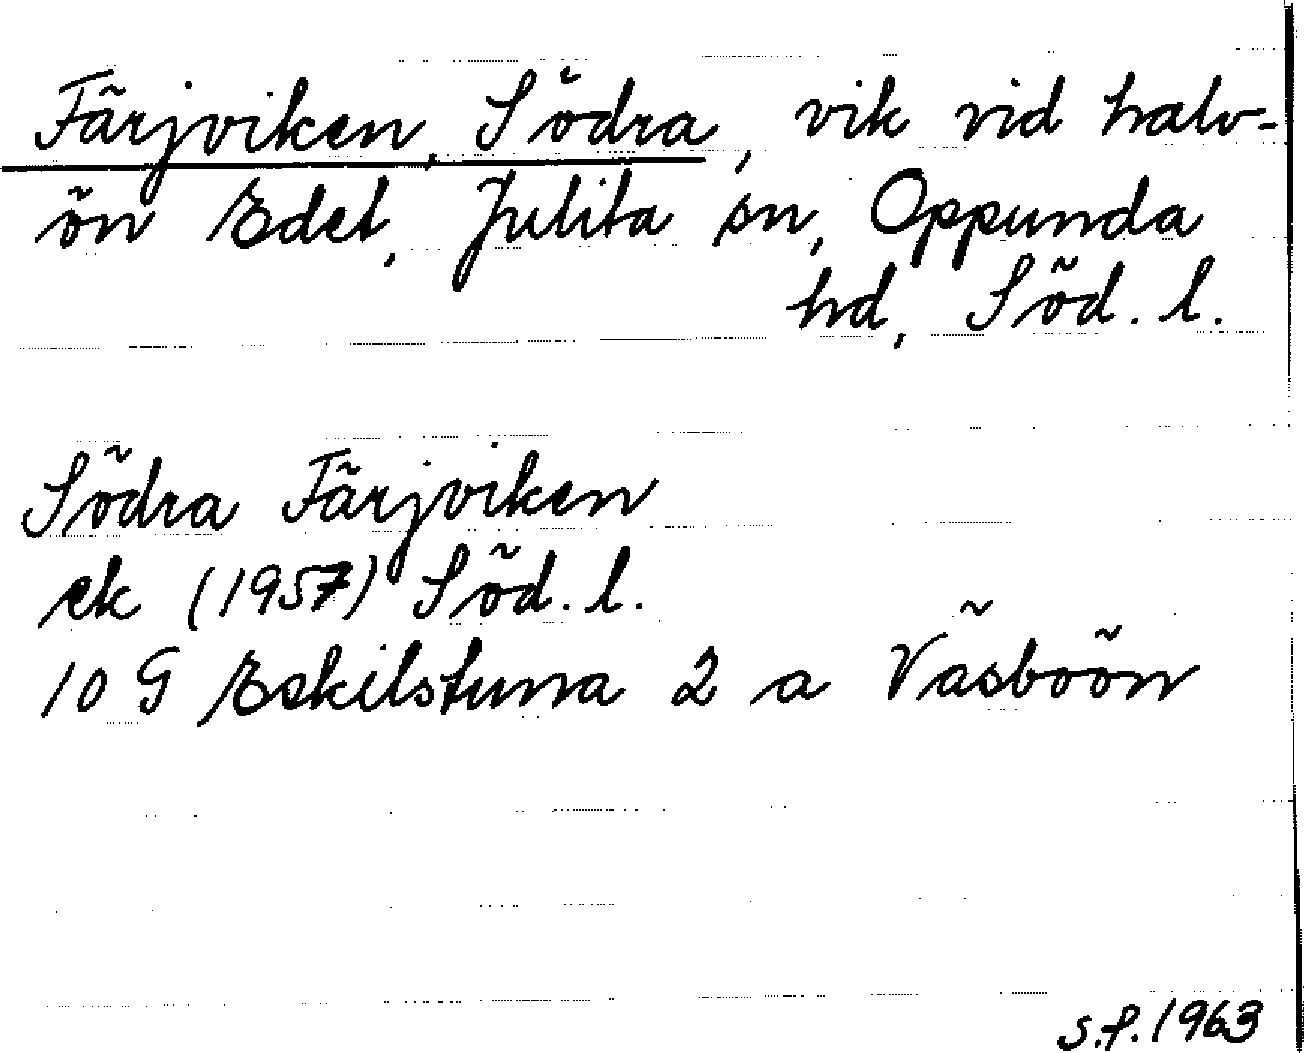 Färjviken, Södra, vik vid halv-
ön Edet, Julita sn, Oppunda
hd, Söd. l.
Södra Färjviken
ek (1957) Söd. l.
10 G Eskilstuna 2 a Väsboön
S.P. 1963